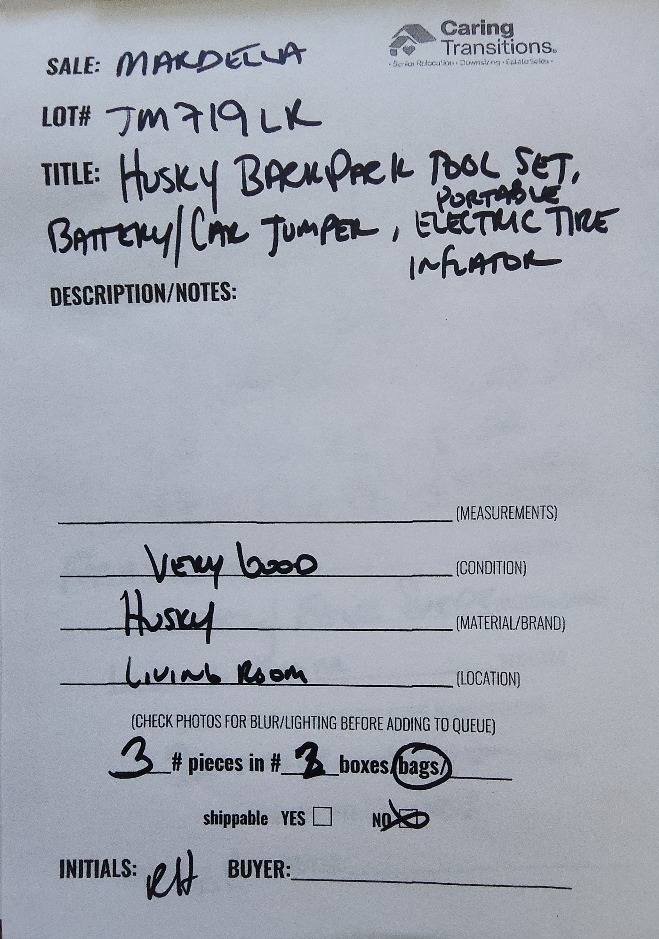 Caring
Transitions®
• Senior Relocation • Downsizing • Estate Sales •
SALE: MARDELLA
LOT# JM719LR
TITLE: HUSKY BACKPACK TOOL SET,
PORTABLE
BATTERY/CAR JUMPER, ELECTRIC TIRE
INFLATOR
DESCRIPTION/NOTES:
(MEASUREMENTS)
VERY GOOD (CONDITION)
HUSKY (MATERIAL/BRAND)
LIVING ROOM (LOCATION)
(CHECK PHOTOS FOR BLUR/LIGHTING BEFORE ADDING TO QUEUE)
3 # pieces in # boxes/bags/
shippable YES NO
INITIALS: RH BUYER: